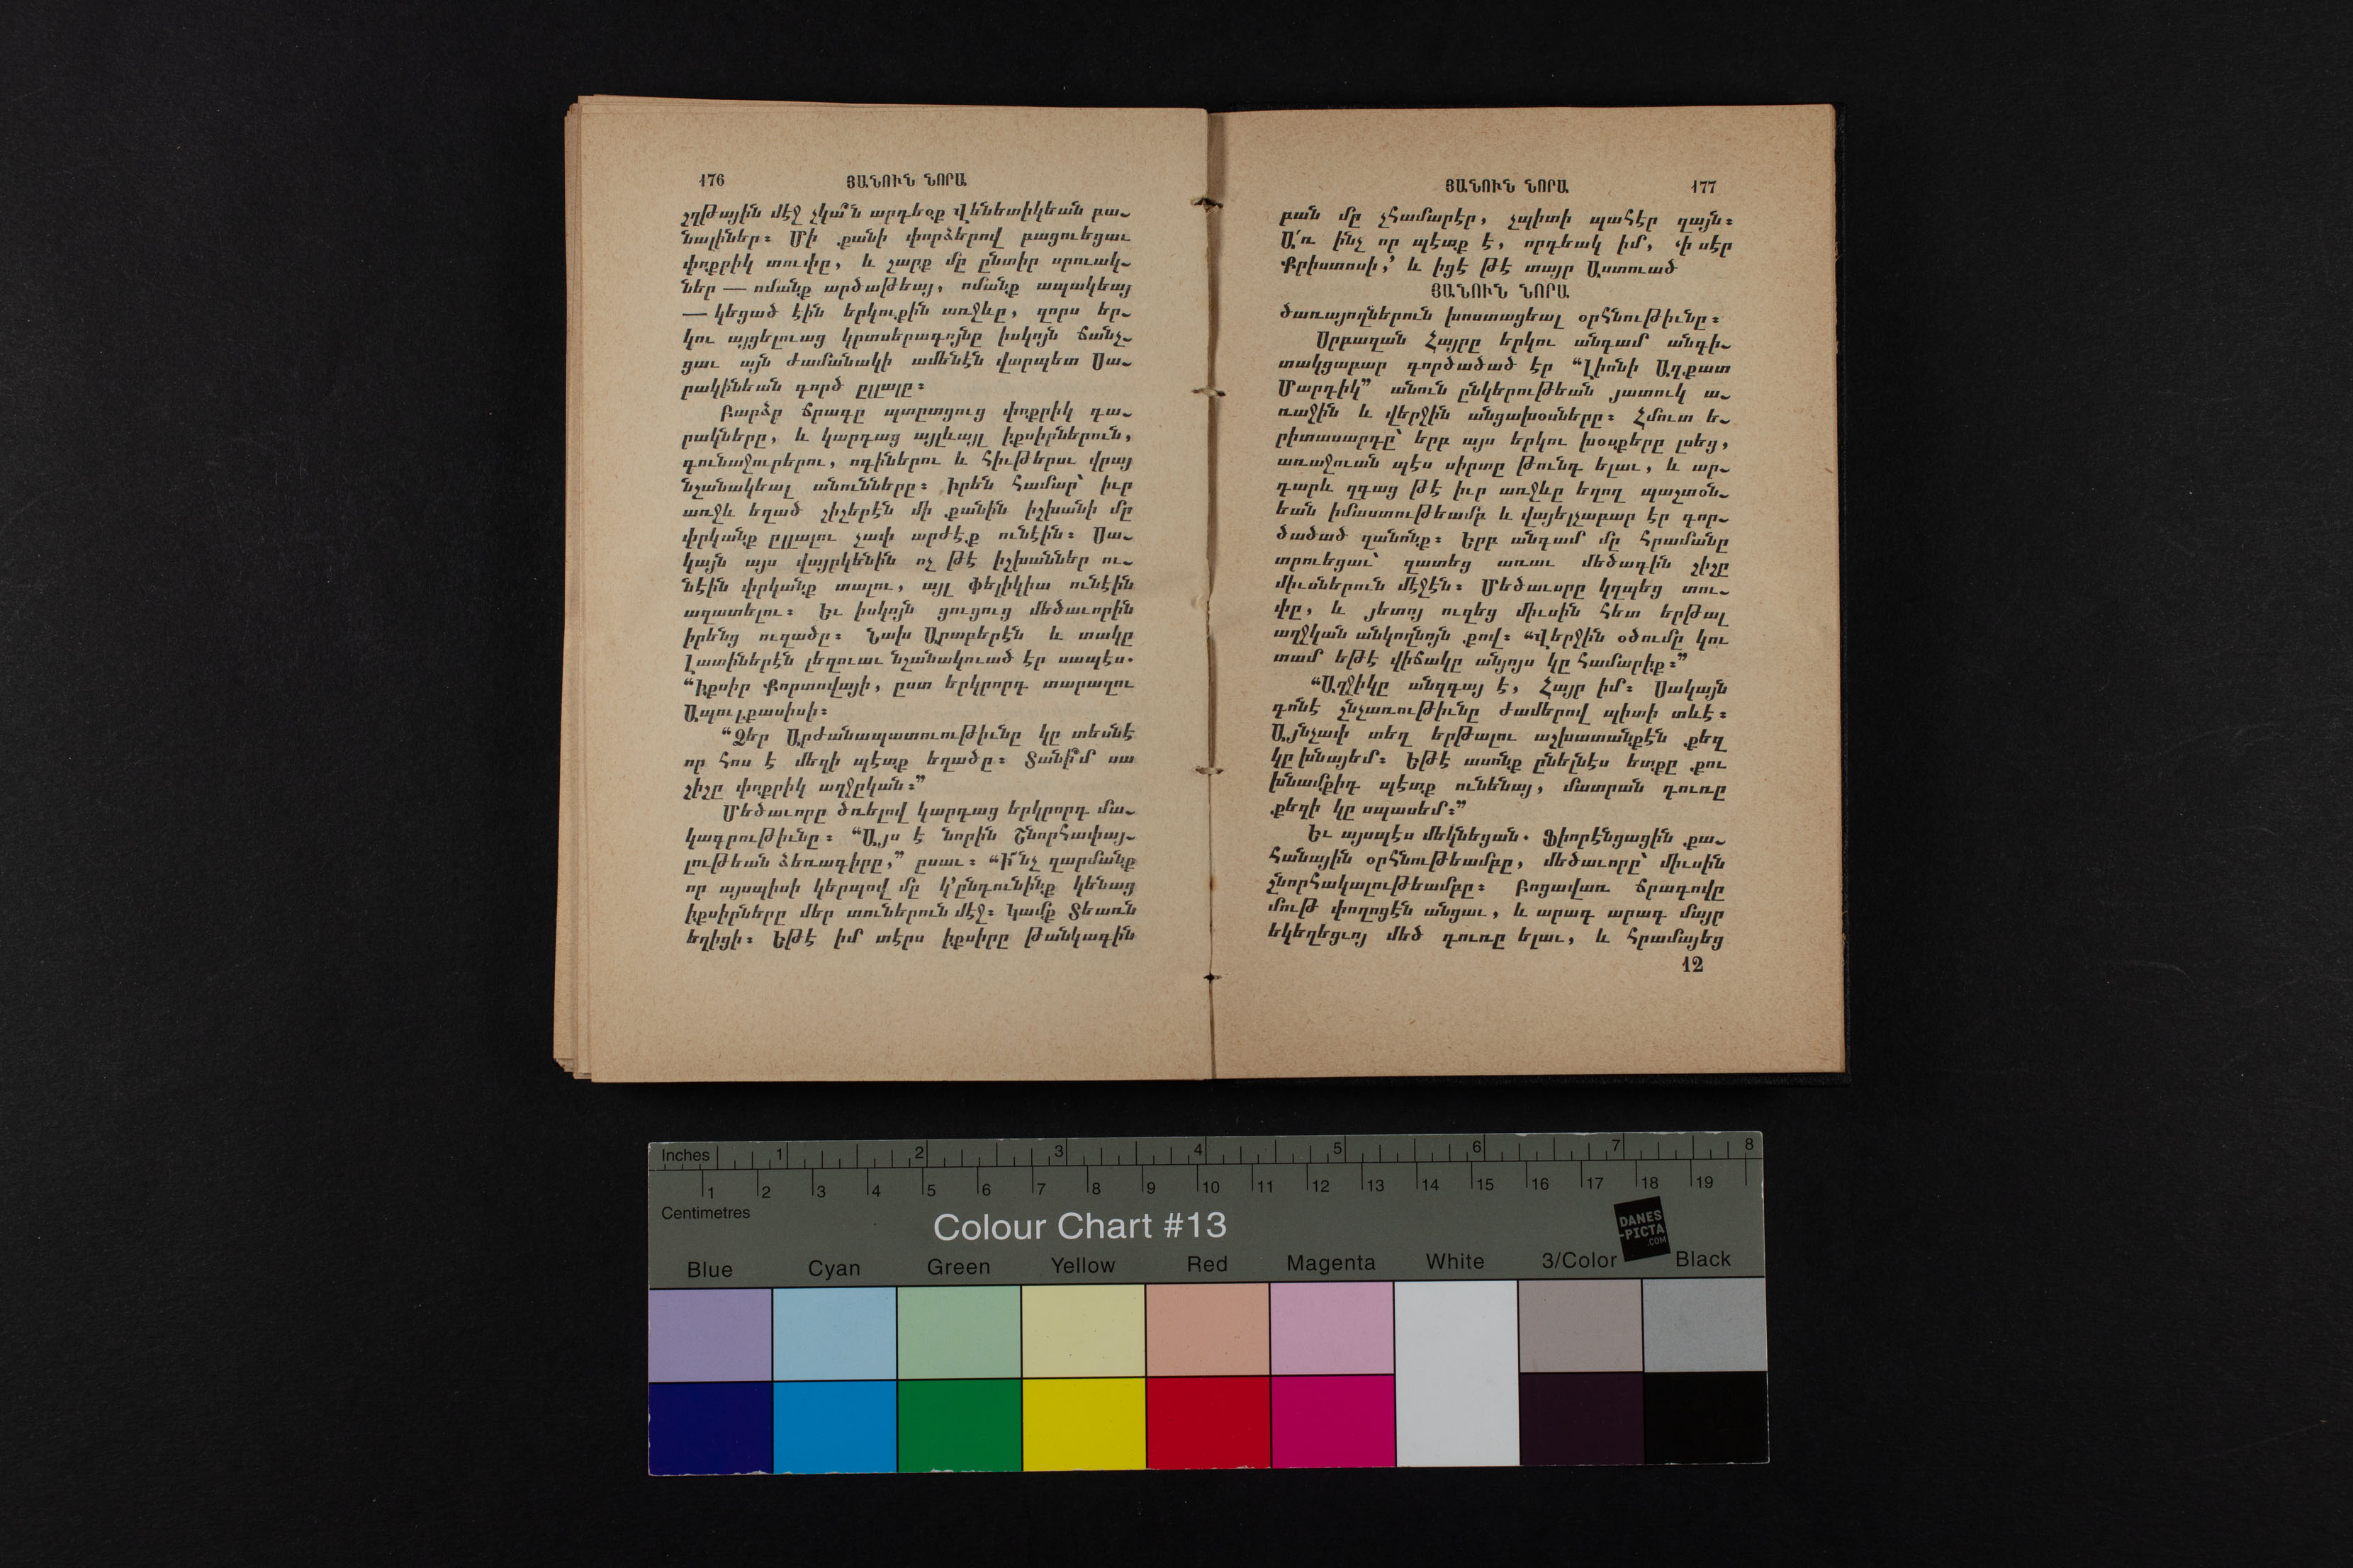 176 ՅԱՆՈՒՆ ՆՈՐԱ
շղթային մէջ չկա՞ն արդեօք Վենետիկեան բա֊
նալիներ։ Մի քանի փորձերով բացուեցաւ
փոքրիկ տուփը, և շարք մը ընտիր սրուակ֊
ներ — ոմանք արծաթեայ, ոմանք ապակեայ
— կեցած էին երկուքին առջևը, զորս եր֊
կու այցելուաց կրտսերագոյնը իսկոյն ճանչ֊
ցաւ այն ժամանակի ամենէն վարպետ Սա֊
րակինեան գործ ըլլալը։
Բարձր ճրագը պտրտցուց փոքրիկ դա֊
րակները, և կարդաց այլևայլ իքսիրներուն,
գունաջուրերու, ոգիներու և հիւթերու վրայ
նշանակեալ անունները։ Իրեն համար՝ իւր
առջև եղած շիշերէն մի քանին իշխանի մը
փրկանք ըլլալու չափ արժէք ունէին։ Սա֊
կայն այս վայրկենին ոչ թէ իշխաններ ու֊
նէին փրկանք տալու, այլ Ֆելիկիա ունէին
ազատելու։ Եւ իսկոյն ցուցուց մեծաւորին
իրենց ուզածը։ Նախ Արաբերէն և տակը
Լատիներէն լեզուաւ նշանակուած էր սապէս.
“Իքսիր Քորտովայի, ըստ երկրորդ տարազու
Ապուլքասիսի։
“Ձեր Արժանապատուութիւնը կը տեսնէ
որ հոս է մեզի պէտք եղածը։ Տանի՞մ սա
շիշը փոքրիկ աղջըկան։”
Մեծաւորը ծռելով կարդաց երկրորդ մա֊
կագրութիւնը։ “Այս է նորին Շնորհափայ֊
լութեան ձեռագիրը,” ըսաւ։ “Ի՜նչ զարմանք
որ այսպիսի կերպով մը կ՚ընդունինք կենաց
իքսիրները մեր տուներուն մէջ։ Կամք Տեառն
եղիցի։ Եթէ իմ տէրս իքսիրը թանկագին
ՅԱՆՈՒՆ ՆՈՐԱ 177
բան մը չհամարէր, չպիտի պահէր զայն։
Ա՛ռ ինչ որ պէտք է, որդեակ իմ, ՚ի սէր
Քրիստոսի,’ և իցէ թէ տայր Աստուած
ՅԱՆՈՒՆ ՆՈՐԱ
ծառայողներուն խոստացեալ օրհնութիւնը։
Սրբազան Հայրը երկու անգամ անգի֊
տակցաբար գործածած էր “Լիոնի Աղքատ
Մարդիկ” անուն ընկերութեան յատուկ ա֊
ռաջին և վերջին անցախօսները։ Հմուտ ե֊
րիտասարդը՝ երբ այս երկու խօսքերը լսեց,
առաջուան պէս սիրտը թունդ ելաւ, և ար֊
դարև զգաց թէ իւր առջևը եղող պաշտօն֊
եան իմաստութեամբ և վայելչաբար էր գոր֊
ծածած զանոնք։ Երբ անգամ մը հրամանը
տրուեցաւ՝ զատեց առաւ մեծագին շիշը
միւսներուն մէջէն։ Մեծաւորը կղպեց տու֊
փը, և յետոյ ուզեց միւսին հետ երթալ
աղջկան անկողնոյն քով։ “Վերջին օծումը կու
տամ եթէ վիճակը անյոյս կը համարիք։”
“Աղջիկը անզգայ է, Հայր իմ։ Սակայն
գոնէ շնչառութիւնը ժամերով պիտի տևէ։
Այնչափ տեղ երթալու աշխատանքէն քեզ
կը խնայեմ։ Եթէ ասոնք ընելնէս ետքը քու
խնամքիդ պէտք ունենայ, մատրան դուռը
քեզի կը սպասեմ։”
Եւ այսպէս մեկնեցան. Ֆիորէնցացին քա֊
հանային օրհնութեամբը, մեծաւորը՝ միւսին
շնորհակալութեամբը։ Բոցավառ ճրագովը
մութ փողոցէն անցաւ, և արագ արագ մայր
եկեղեցւոյ մեծ դուռը ելաւ, և հրամայեց
12
Inches 1 2 3 4 5 6 7 8
1 2 3 4 5 6 7 8 9 10 11 12 13 14 15 16 17 18 19
Centimetres
Colour Chart #13
DANES
-PICTA
.COM
Blue Cyan Green Yellow Red Magenta White 3/Color Black